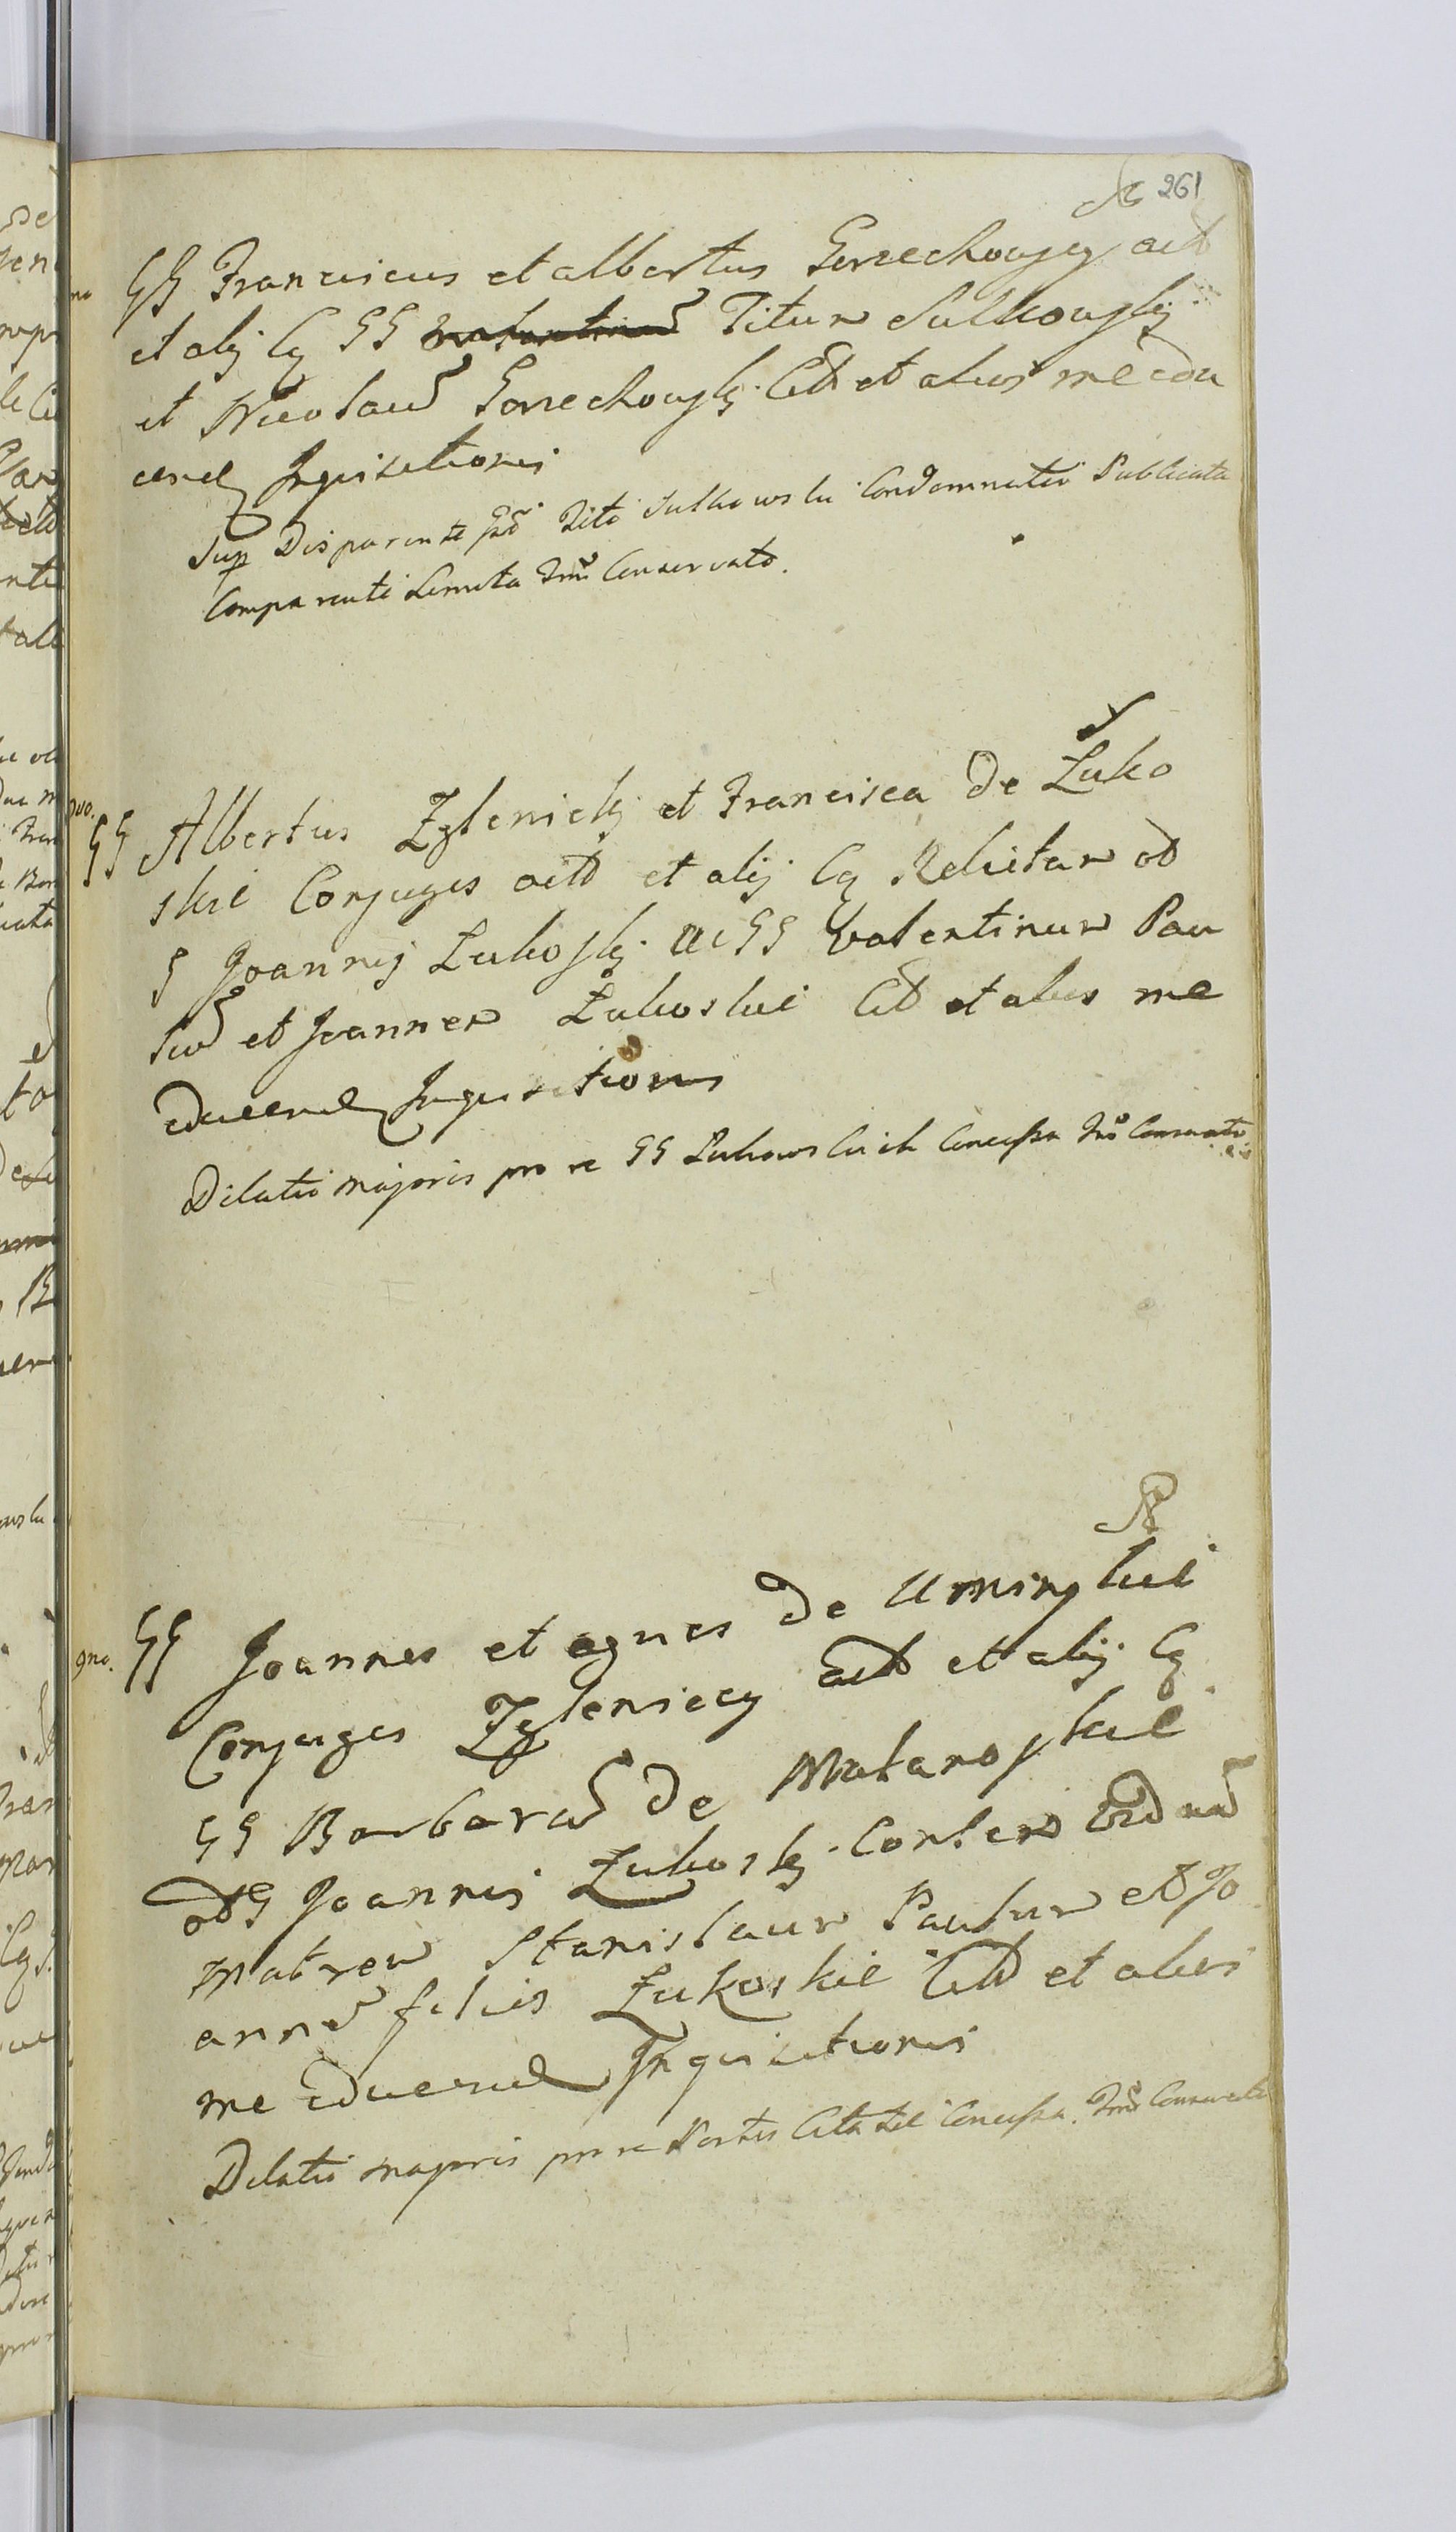 261
GG Franciscus et Albertus Gorzechowscy act
et alij Cq GG Titum Sulkowsky
et Nicolaum Gorzechowsky Citt et alios me edu
cend Inquisitionis
Sup Disparente Gd Tito Sulkowski Condemnatio Publicata
Comparenti Semita Tmi Conservato.
GG Albertus Zglenicky et Francisca De Zuko
skie Conjuges actt et alij Cq Relictam od
G Joannis Zukosky ac GG Valentinum Pau
lum et Joannem Zukoskie Citt et alios me
educend Inquisitionis
Dilatio majoris pro re GG Zukowskich Concessa Tmo Conservato
9no. GG Joannes et Agnes De Uminskie
Conjuges Zgleniccy actt et alij Cq
GG Barbaram De Mataroskie
od G Joannis Zukosky Consten Viduam
Matrem Stanislaum Paulum et Jo
annem filios Zukoskie Citt et alios
me educend Inquisitionis
Dilatio majoris pro re Partis Citatae Concessa Tmo Conservato